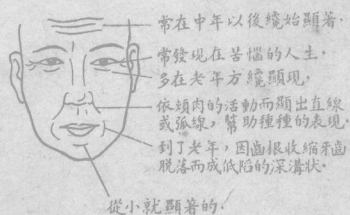 常在中年以後纔始顯著．
常發現在苦惱的人生．
多在老年方纔顯現．
依頰肉的活動而顯出直線
或弧線，幫助種種的表現．
到了老年，因齒根收縮牙齒
脫落而成低陷的深溝狀．
從小就顯著的．